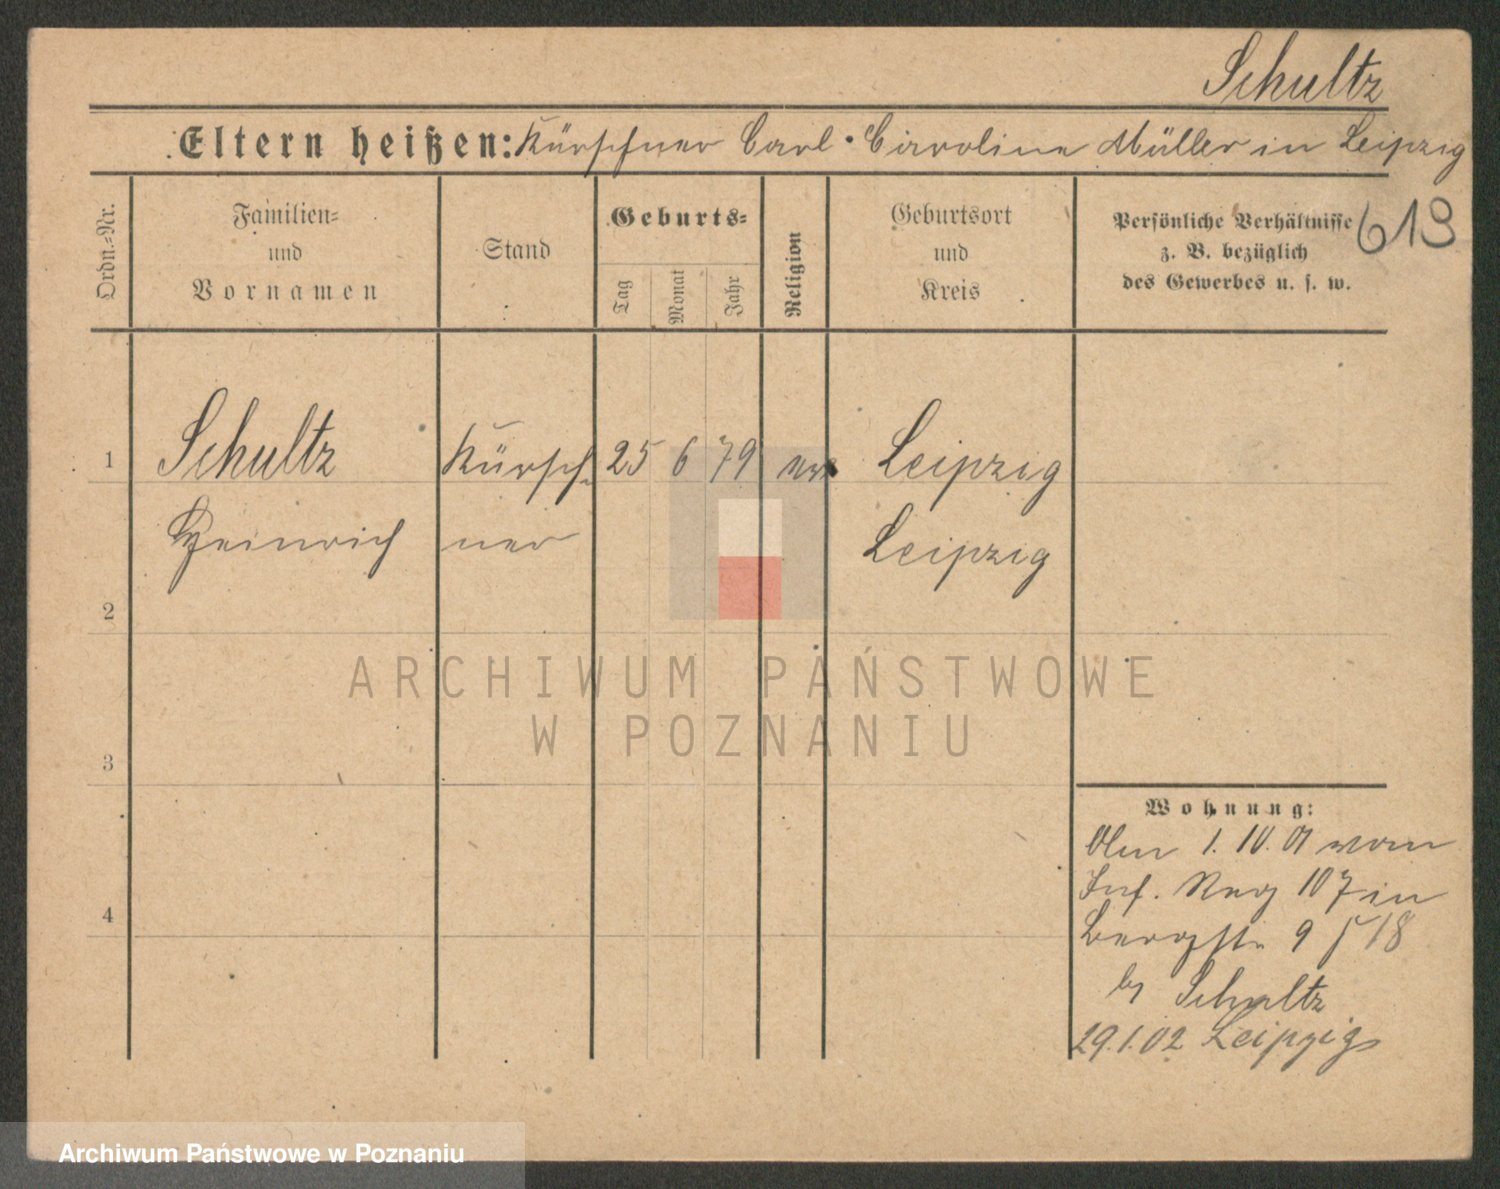 Schultz
Eltern heißen: Kürschner Carl · Caroline Müller in Leipzig
Ordn.-Nr.
Familien-
und
Vornamen
Stand
Geburts-
Tag
Monat
Jahr
Religion
Geburtsort
und
Kreis
Persönliche Verhältnisse
z. B. bezüglich
des Gewerbes u. s. w.
613
1 Schultz Kürsch- 25 6 79 Leipzig
Heinrich ner Leipzig
2
ARCHIWUM PAŃSTWOWE
W POZNANIU
3
4
Wohnung:
1.10.01 vom
Inf. Reg 107 in
Bergstr 9 18
by Schultz
29.1.02 Leipzig
Archiwum Państwowe w Poznaniu